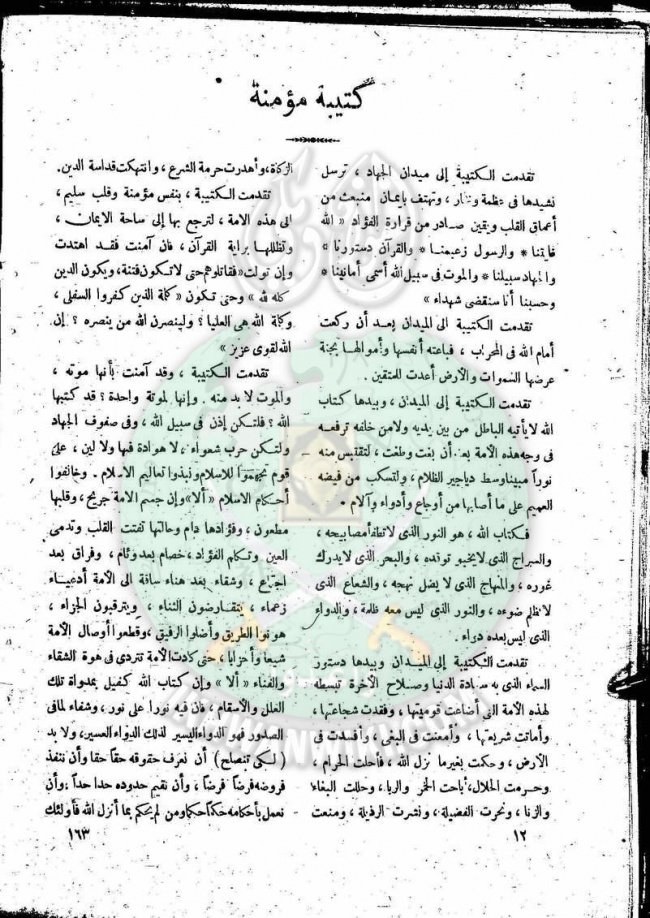 كتيبة مؤمنة
تقدمت الكتيبة إلى ميدان الجهاد ، ترسل
نشيدها فى عظمة ووقار ، وتهتف بإيمان منبعث من
أعماق القلب ويقين صادر من قرارة الفؤاد « الله
غايتنا * والرسول زعيمنا * والقرآن دستورنا *
والجهاد سبيلنا * والموت فى سبيل الله أسمى أمانينا *
وحسبنا أنا سنقضى شهداء »
تقدمت الكتيبة الى الميدان بعد أن ركعت
أمام الله فى المحراب ، فباعته أنفسها وأموالها بجنة
عرضها السموات والأرض أعدت للمتقين .
تقدمت الكتيبة إلى الميدان ، وبيدها كتاب
الله لا يأتيه الباطل من بين يديه ولا من خلفه ترفعه
فى وجه هذه الأمة بعد أن بغت وطغت ، لتقتبس منه
نوراً مبينا وسط دياجير الظلام ، ولتسكب من فيضه
العميم على ما أصابها من أوجاع وأدواء وآلام .
فكتاب الله ، هو النور الذى لا تطفأ مصابيحه ،
والسراج الذى لا يخبو توقده ، والبحر الذى لا يدرك
غوره ، والمنهاج الذى لا يضل نهجه ، والشعاع الذى
لا يظلم ضوءه ، والنور الذى ليس معه ظلمة ، والدواء
الذى ليس بعده دواء .
تقدمت الكتيبة إلى الميدان وبيدها دستور
السماء الذى به سعادة الدنيا وصلاح الآخرة تبسطه
لهذه الأمة التى أضاعت قوميتها ، وفقدت شجاعتها ،
وأماتت شريعتها ، وأمعنت فى البغى ، وأفسدت فى
الأرض ، وحكت بغير ما نزل الله ، فأحلت الحرام ،
وحرمت الحلال ، أباحت الخمر والربا ، وحللت البغاء
والزنا ، ونحرت الفضيلة ، ونشرت الرذيلة ، ومنعت
١٢
الزكاة ، وأهدرت حرمة الشرع ، وانتهكت قداسة الدين .
تقدمت الكتيبة ، بنفس مؤمنة وقلب سليم ،
الى هذه الامة ، لترجع بها إلى ساحة الايمان ،
وتظللها براية القرآن ، فان آمنت فقد اهتدت
وإن تولت « فقاتلوهم حتى لا تكون فتنة ، ويكون الدين
كله لله » وحتى تكون « كلمة الذين كفروا السفلى ،
وكلمة الله هى العليا ؟ ولينصرن الله من ينصره ؟ إن
الله لقوى عزيز »
تقدمت الكتيبة ، وقد آمنت بأنها موته ،
والموت لا بد منه . وإنها لموتة واحدة ؟ قد كتبها
الله ؟ فلتكن إذن فى سبيل الله ، وفى صفوف الجهاد
ولتكن حرب شعواء ، لا هوادة فيها ولا لين ، على
قوم تجهموا للاسلام ونبذوا تعاليم الاسلام . وخالفوا
أحكام الاسلام « ألا » وإن جسم الامة جريح ، وقلبها
مطعون ، وفؤادها دام وحالتها تفتت القلب وتدمى
العين وتكلم الفؤاد ، خصام بعد وئام ، وفراق بعد
اجتماع ، وشقاء بعد هناء ساقة الى الأمة أدعياء
زعماء ، يتقارضون الثناء ، ويترقبون الجزاء ،
هونوا الطريق وأضلوا الرفيق ، وقطعوا أوصال الأمة
شيعا وأحزابا ، حتى كادت الأمة تتردى فى هوة الشقاء
والفناء « ألا » وإن كتاب الله كفيل بمداواة تلك
العلل والأسقام ، فان فيه نورا على نور ، وشفاء لما فى
الصدور فهو الدواء اليسير لذلك الداء العسير ، ولا بد
( لكى تنصلح ) أن نعرف حقوقه حقا حقا وأن ننفذ
فروضه فرضاً فرضاً ، وأن نقيم حدوده حدا حداً ، وأن
نعمل بأحكامه حكما حكما ومن لم يحكم بما أنزل الله فأولئك
١٦٣